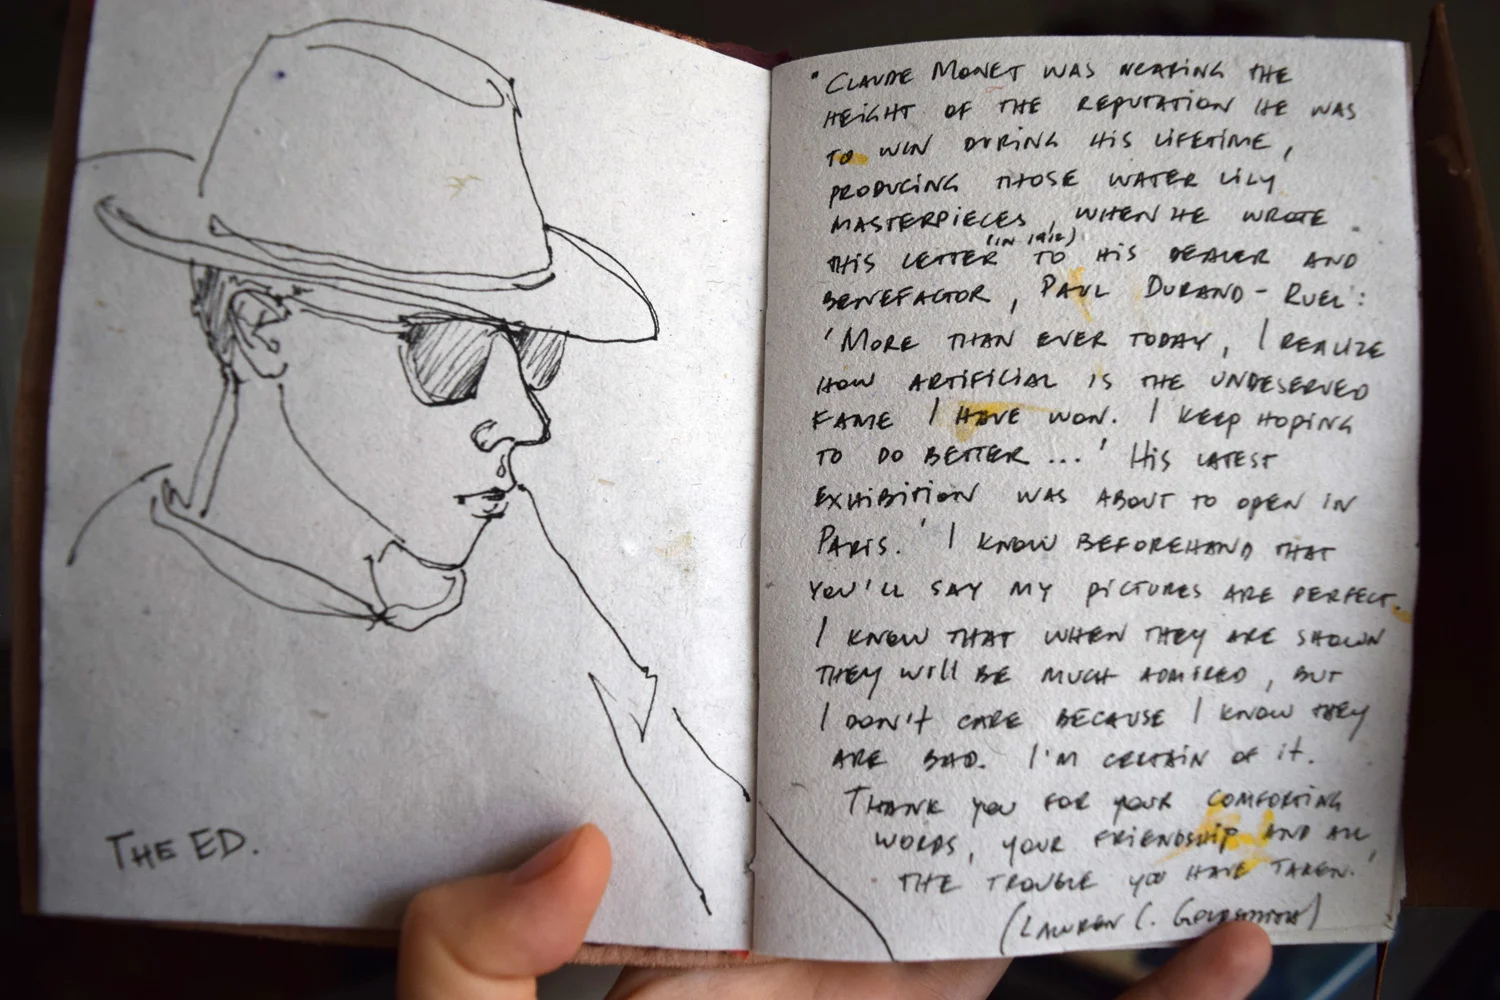 THE ED.
"CLAUDE MONET WAS NEARING THE
HEIGHT OF THE REPUTATION HE WAS
TO WIN DURING HIS LIFETIME,
PRODUCING THOSE WATER LILY
MASTERPIECES, WHEN HE WROTE
THIS LETTER (IN 1912) TO HIS DEALER AND
BENEFACTOR, PAUL DURAND-RUEL:
'MORE THAN EVER TODAY, I REALIZE
HOW ARTIFICIAL IS THE UNDESERVED
FAME I HAVE WON. I KEEP HOPING
TO DO BETTER ...' HIS LATEST
EXHIBITION WAS ABOUT TO OPEN IN
PARIS. 'I KNOW BEFOREHAND THAT
YOU'LL SAY MY PICTURES ARE PERFECT.
I KNOW THAT WHEN THEY ARE SHOWN
THEY WILL BE MUCH ADMIRED, BUT
I DON'T CARE BECAUSE I KNOW THEY
ARE BAD. I'M CERTAIN OF IT.
THANK YOU FOR YOUR COMFORTING
WORDS, YOUR FRIENDSHIP AND ALL
THE TROUBLE YOU HAVE TAKEN.'
(LAUREN C.